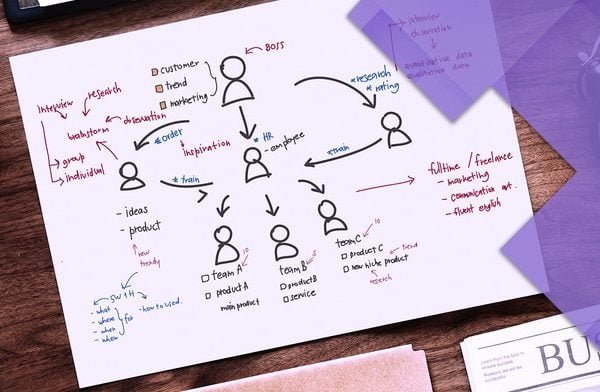 BOSS
customer
trend
marketing
interview
observation
quantitative data
qualitative data
* research
* rating
interview
research
observation
brainstorm
group
individual
* order
inspiration
* HR
- employee
* train
* train
fulltime / freelance
- marketing
- communication art.
- fluent english
- ideas
- product
new
trendy
5W 1H
- what
- where
- when
for
- how to used.
10
team A
product A
main product
team B
product B
service
10
team C
product C
trend
new niche product
research
BU